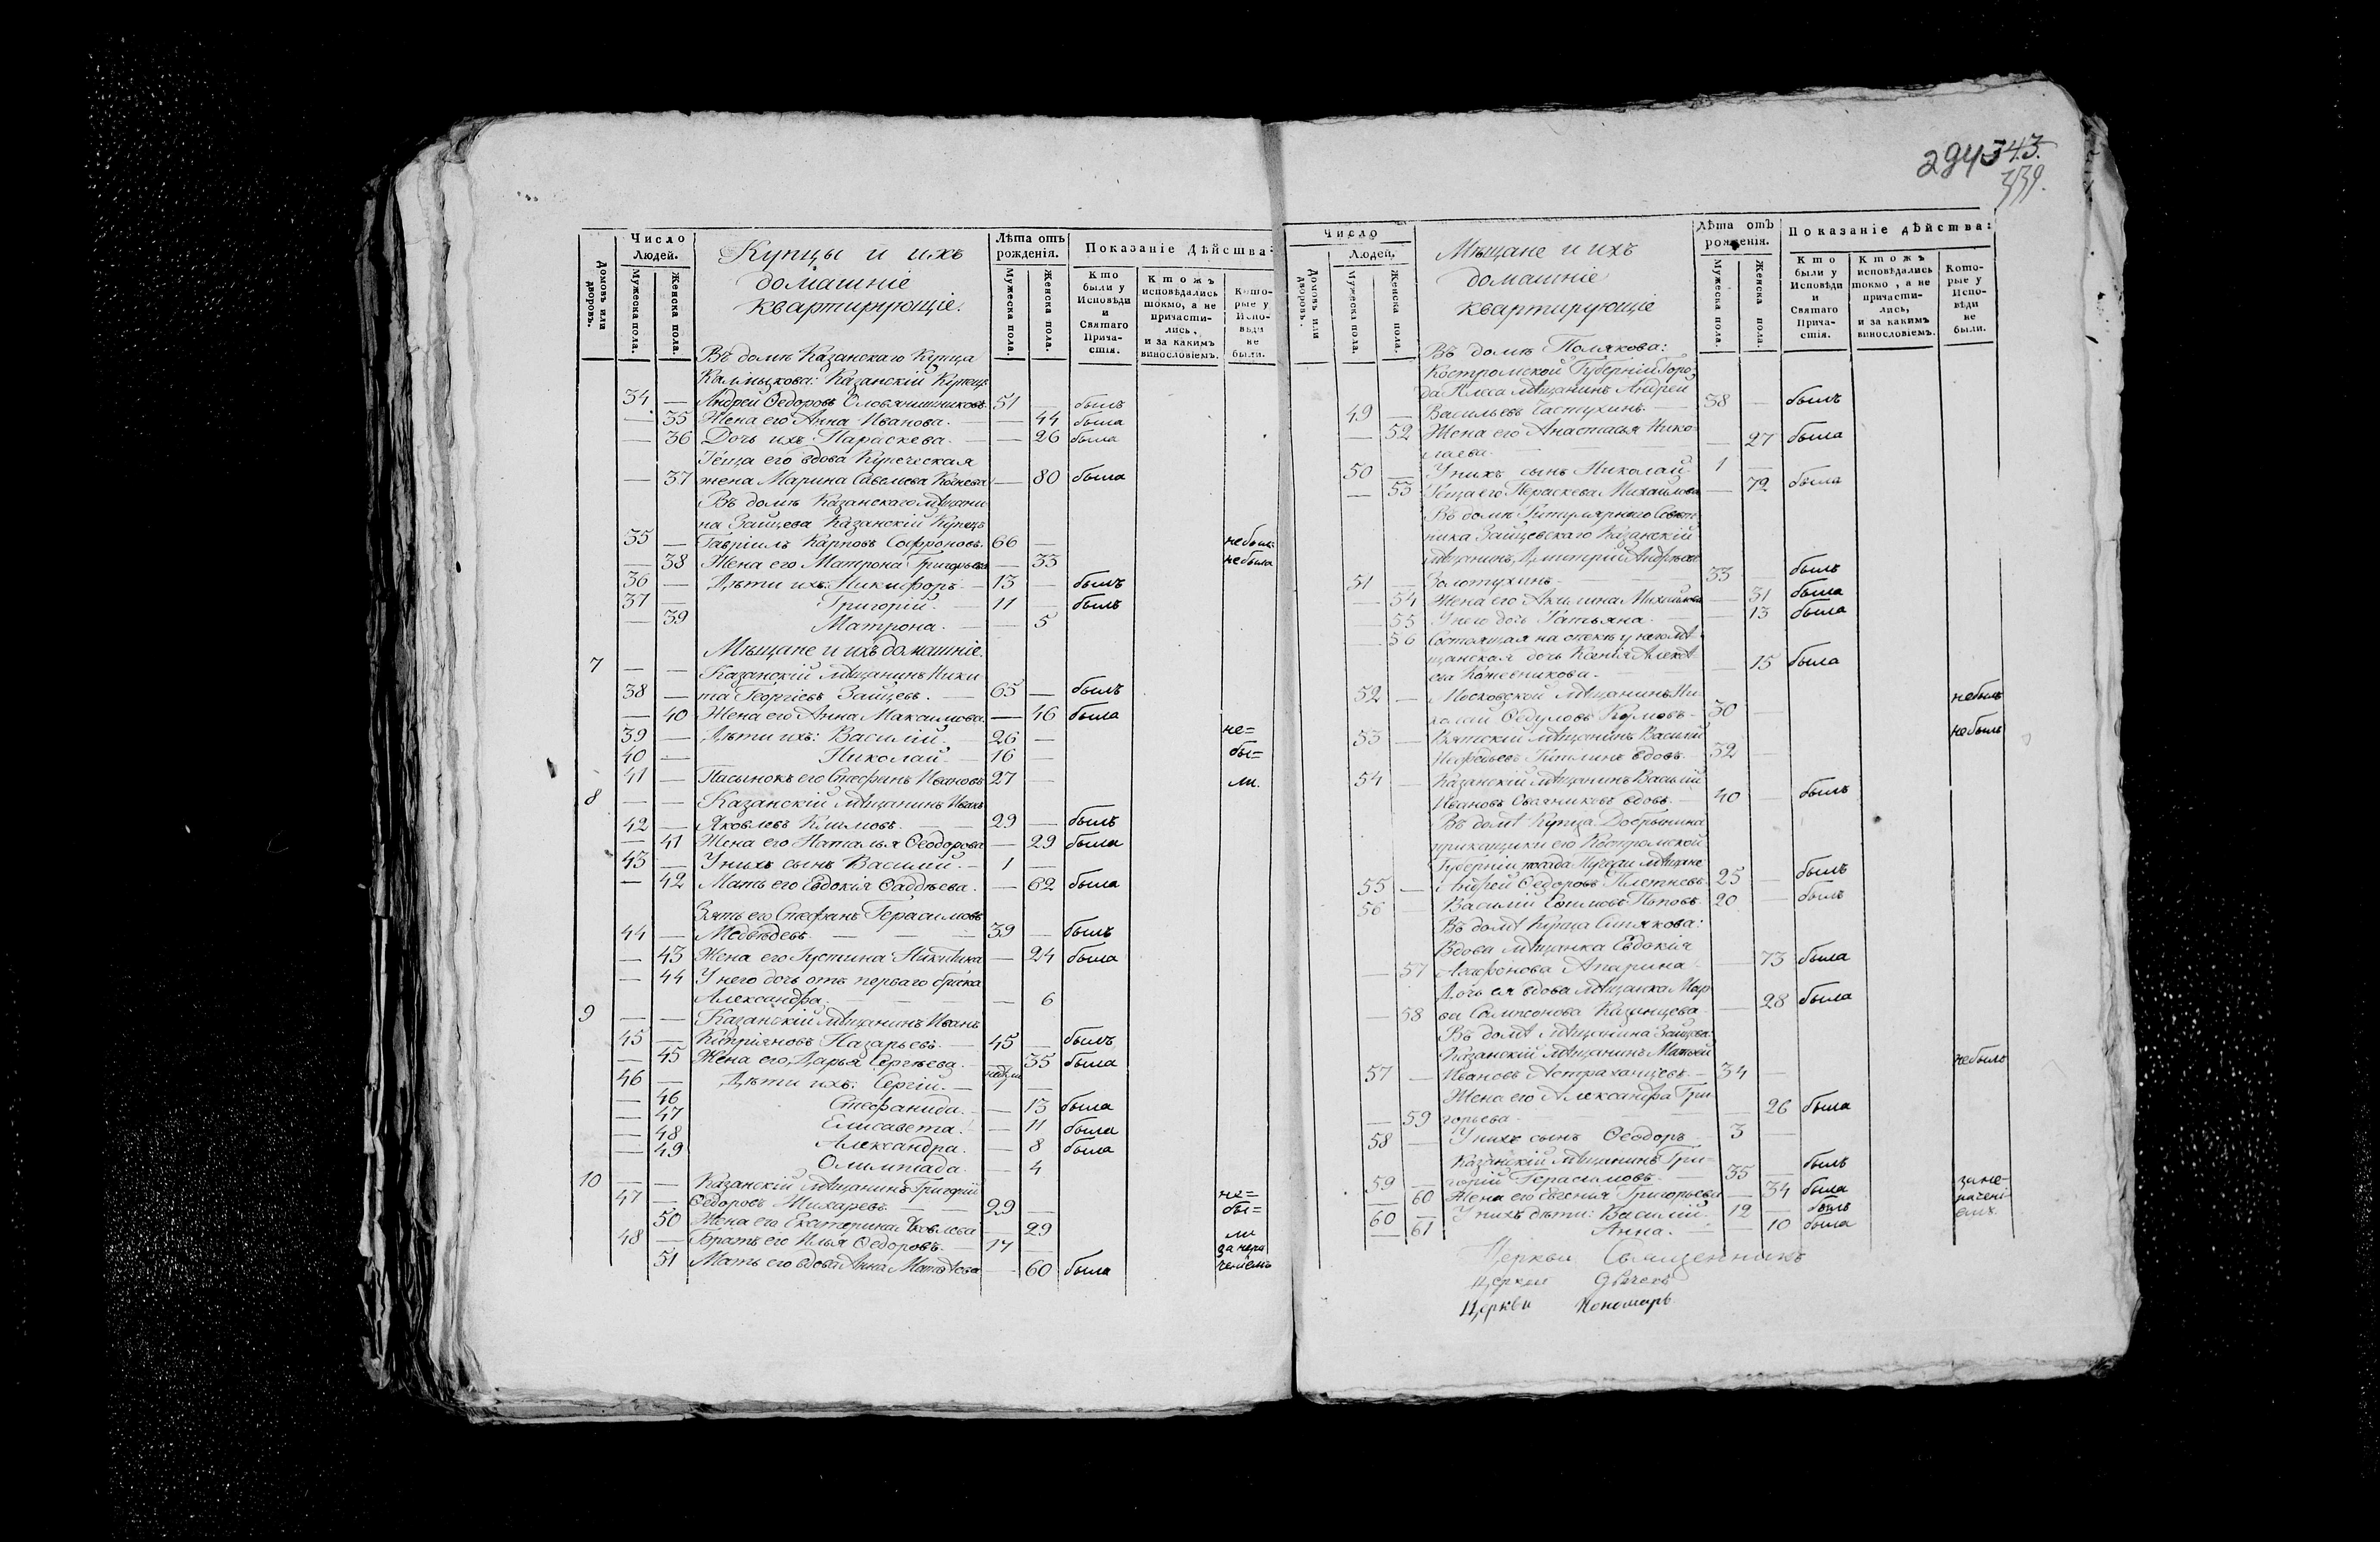 294 343.
339.
Домовъ или дворовъ.
Число Людей.
Мужеска пола.
Женска пола.
Купцы и ихъ
домашніе
квартирующіе.
Лѣта отъ рожденія.
Мужеска пола.
Женска пола.
Показаніе дѣйства:
Кто были у Исповѣди и Святаго Прича- стія.
Ктожъ исповѣдались токмо, а не причасти- лись, и за какимъ винословіемъ.
Кото- рые у Испо- вѣди не были.
Въ домѣ Казанскаго Купца
Калмыкова: Казанскій Купецъ
34 — Андрей Ѳедоровъ Оловянишниковъ 51 — былъ
— 35 Жена его Анна Иванова. — 44 была
— 36 Дочь ихъ Параскева. — 26 была
Теща его вдова Купеческая
— 37 жена Марина Савельева — 80 была
Въ домѣ Казанскаго мѣщани-
на Зайцева Казанскій Купецъ
35 — Гавріилъ Карповъ Софроновъ. 66 — небылъ
— 38 Жена его Матрона Григорьева — 33 небыла
36 — Дѣти ихъ: Никифоръ. 13 — былъ
37 — Григорій. 11 — былъ
— 39 Матрона. — 5
Мѣщане и ихъ домашніе.
7 — — Казанскій мѣщанинъ Ники-
38 — та Георгіевъ Зайцевъ. 65 — былъ
— 40 Жена его Анна Максимова. — 46 была
39 — Дѣти ихъ: Василій. 26 — не=
40 — Николай. 16 — бы=
41 — Пасынокъ его Стефанъ Ивановъ 27 ли.
8 — — Казанскій мѣщанинъ Иванъ
42 — Яковлевъ Климовъ. 29 — былъ
— 41 Жена его Наталья Ѳеодорова — 29 была
43 — У нихъ сынъ Василій. 1 —
— 42 Мать его Евдокія Ѳаддѣева. — 62 была
Зять его Стефанъ Герасимовъ
44 — Медвѣдевъ. 39 — былъ
— 43 Жена его Іустина Никитина — 24 была
— 44 У него дочь отъ перваго брака
Александра. — 6
9 — — Казанскій мѣщанинъ Иванъ
45 — Кипріяновъ Назарьевъ. 45 — былъ
— 45 Жена его Дарья Сергѣева. — 35 была
46 — Дѣти ихъ: Сергій. —
— 46 Стефанида. — 13 была
— 47 Елисавета. — 11 была
— 48 Александра. — 8 была
— 49 Олимпіада. — 4
10 — — Казанскій мѣщанинъ Григорій
47 — Ѳедоровъ Жихаревъ. 29 — не=
бы=
50 Жена его Екатерина Яковлева — 29 ли
48 — Братъ его Илья Ѳедоровъ. 17 —
51 Мать его вдова Анна Матвѣева — 60 была
Домовъ или дворовъ.
Число Людей.
Мужеска пола.
Женска пола.
Мѣщане и ихъ
домашніе
квартирующіе
Лѣта отъ рожденія.
Мужеска пола.
Женска пола.
Показаніе дѣйства:
Кто были у Исповѣди и Святаго Прича- стія.
Ктожъ исповѣдались токмо, а не причасти- лись, и за какимъ винословіемъ.
Кото- рые у Испо- вѣди не были.
Въ домѣ Полякова:
Костромской Губерніи Горо-
да Плеса мѣщанинъ Андрей
49 — Васильевъ Частухинъ. 38 — былъ
— 52 Жена его Анастасья Нико-
лаева. — 27 была
50 — У нихъ сынъ Николай 1 —
— 53 Теща его Параскева Михайлова — 72 была
Въ домѣ Титулярнаго Совѣт-
ника Зайцевскаго Казанскій
мѣщанинъ Димитрій Андреевъ
51 — Золотухинъ. 33 — былъ
— 54 Жена его Акилина Михайлова — 31 была
— 55 У него дочь Татьяна. — 13 была
— 56 Состоящая на опекѣ у него мѣ-
щанская дочь Ксенія Алексѣ-
ева Кожевникова. — 15 была
52 — Московской мѣщанинъ Ни-
колай Ѳедуловъ 30 — небылъ
53 — Вятскій мѣщанинъ Василій
вдовъ. 32 — небылъ
54 — Казанскій мѣщанинъ Василій
Ивановъ вдовъ. 40 — былъ
Въ домѣ Купца Добрынина
прикащики его Костромской
Губерніи посада мѣщане
55 — Андрей Ѳедоровъ Плетневъ 25 — былъ
56 — Василій Ефимовъ Поповъ. 20 — былъ
Въ домѣ Купца Синякова:
Вдова мѣщанка Евдокія
— 57 Агафонова Апарина — 73 была
Дочь ея вдова мѣщанка Мар-
— 58 ѳа Сампсонова Казанцева — 28 была
Въ домѣ мѣщанина Зайцева:
Казанскій мѣщанинъ Матвей
57 — Ивановъ Астраханцевъ. 34 — небылъ
Жена его Александра Гри-
— 59 горьева — 26 была
58 — У нихъ сынъ Ѳеодоръ 3 —
Казанскій мѣщанинъ Гри-
59 — горій Герасимовъ. 35 — былъ
60 Жена его Евгенія Григорьева — 34 была
60 — У нихъ дѣти: Василій. 12 — былъ
— 61 Анна. — 10 была
Церкви Священникъ
Церкви Діачекъ
Церкви Пономарь